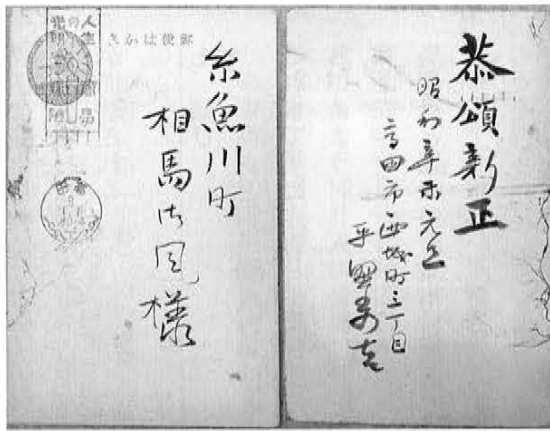 恭頌新正
昭和辛未元旦
高田市西城町三丁目
平野秀吉
郵便はかき
糸魚川町
相馬御風様